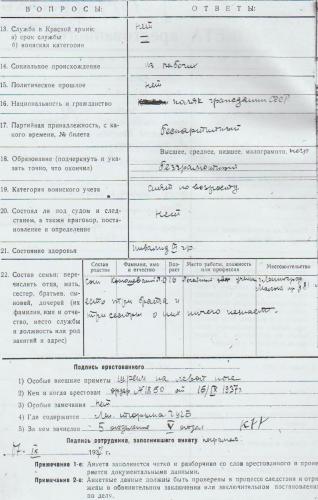 ВОПРОСЫ: ОТВЕТЫ:
13. Служба в Красной армии:
а) срок службы
б) воинская категория
нет
14. Социальное происхождение
из рабочих
15. Политическое прошлое
нет
16. Национальность и гражданство
поляк гражданин СССР
17. Партийная принадлежность, с какого времени, № билета
беспартийный
18. Образование (подчеркнуть и указать точно, что окончил)
Высшее, среднее, низшее, малограмотн.
безграмотный
19. Категория воинского учета
снят по возрасту
20. Состоял ли под судом и следствием, а также приговор, постановление и определение
нет
21. Состояние здоровья
инвалид II гр.
22. Состав семьи: перечислить отца, мать, сестер, братьев, сыновей, дочерей (их фамилия, имя и отчество, место службы и должность или род занятий и адрес)
Состав родства
Фамилия, имя и отчество
Возраст
Место работы, должность или профессия
Местожительство
сын
16
есть три брата и
три сестры о них ничего
Подпись арестованного
1) Особые внешние приметы
на левой ноге
2) Кем и когда арестован ордер № 1850 от 16/IX 1937г
3) Особые замечания нет
4) Где содержится Лен. тюрьма УГБ
5) За кем зачислен 5 отделение V отдел КРУ
Подпись сотрудника, заполнившего анкету
17. IX 193 г.
Примечание 1-е: Анкета заполняется четко и разборчиво со слов арестованного и проверяется документальными данными.
Примечание 2-е: Анкетные данные должны быть проверены в процессе следствия и отражены в обвинительном заключении или заключительном постановлении по делу.